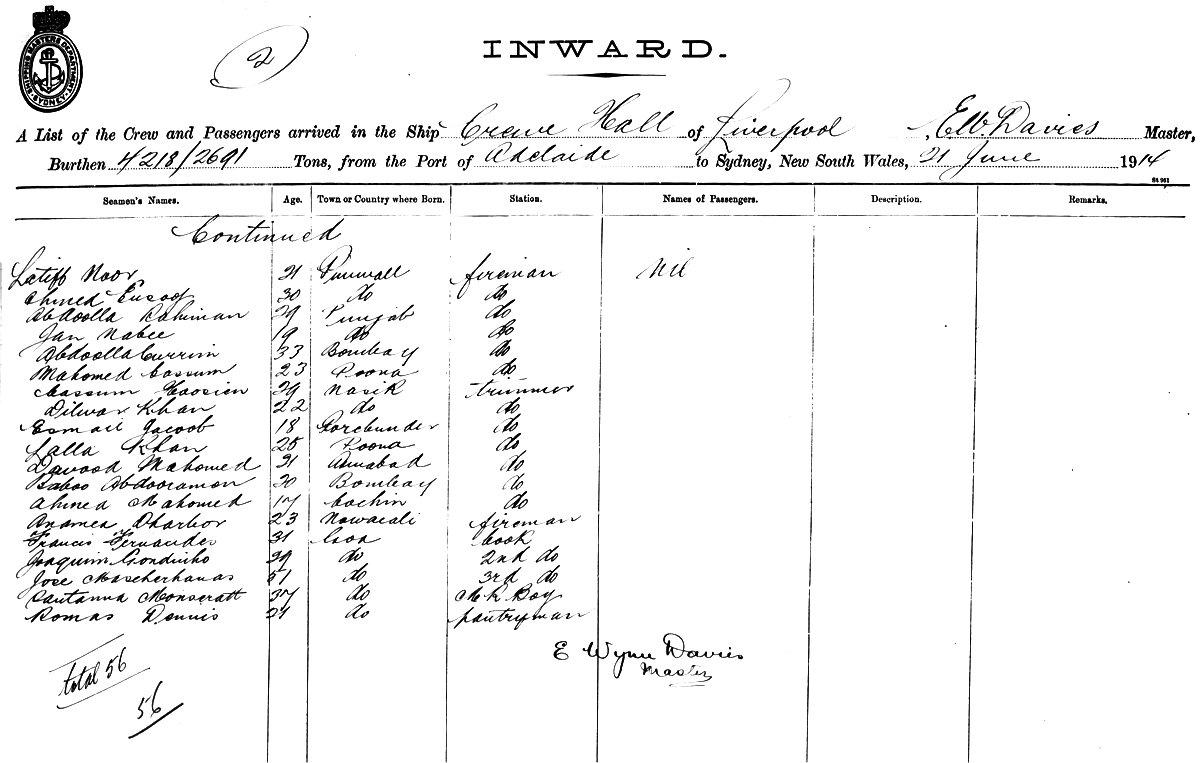 SHIPPING MASTERS DEPARTMENT SYDNEY
2
INWARD.
A List of the Crew and Passengers arrived in the Ship Crewe Hall of Liverpool, E.W. Davies Master,
Burthen 4218/2691 Tons, from the Port of Adelaide to Sydney, New South Wales, 21 June 1914
Seamen's Names. Age. Town or Country where Born. Station. Names of Passengers. Description. Remarks.
Continued
Latiff Noor 21 fireman Nil
Ahmed Eusoof 30 do do
Abdoolla Rahiman 29 Punjab do
Jan Nabee 19 do do
Abdoolla Currim 33 Bombay do
Mahomed Cassum 23 Poona do
Cassum Hoosien 29 Nasik trimmer
Dilwar Khan 22 do do
Esmail Jacoob 18 Gorebunder do
Lalla Khan 25 Poona do
Dawood Mahomed 31 do
Baboo Abdooramon 30 Bombay do
Ahmed Mahomed 17 Cochin do
23 fireman
Francis Fernandes 31 Goa Cook
Joaquim Gondinho 39 do 2nd do
Jose Mascherhanas 51 do 3rd do
Cautanna Monseratt 37 do Boy
Romas Dennis 21 do pantryman
E Wynn Davies
Master
total 56
56